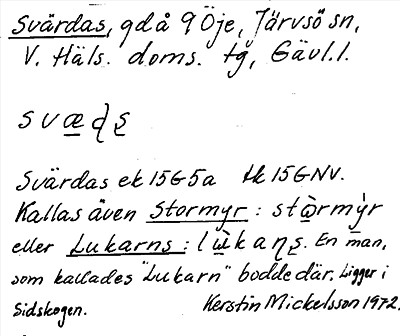 Svärdas, gdå 9 Öje, Järvsö sn,
V. Häls. doms. tg, Gävl.l.
svæḍs
Svärdas ek 15G5a tk 15GNV.
Kallas även Stormyr : stɔ̀rmýr
eller Lukarns : lẁkaṇs. En man,
som kallades "Lukarn" bodde där. Ligger i
Sidskogen. Kerstin Mickelsson 1972.